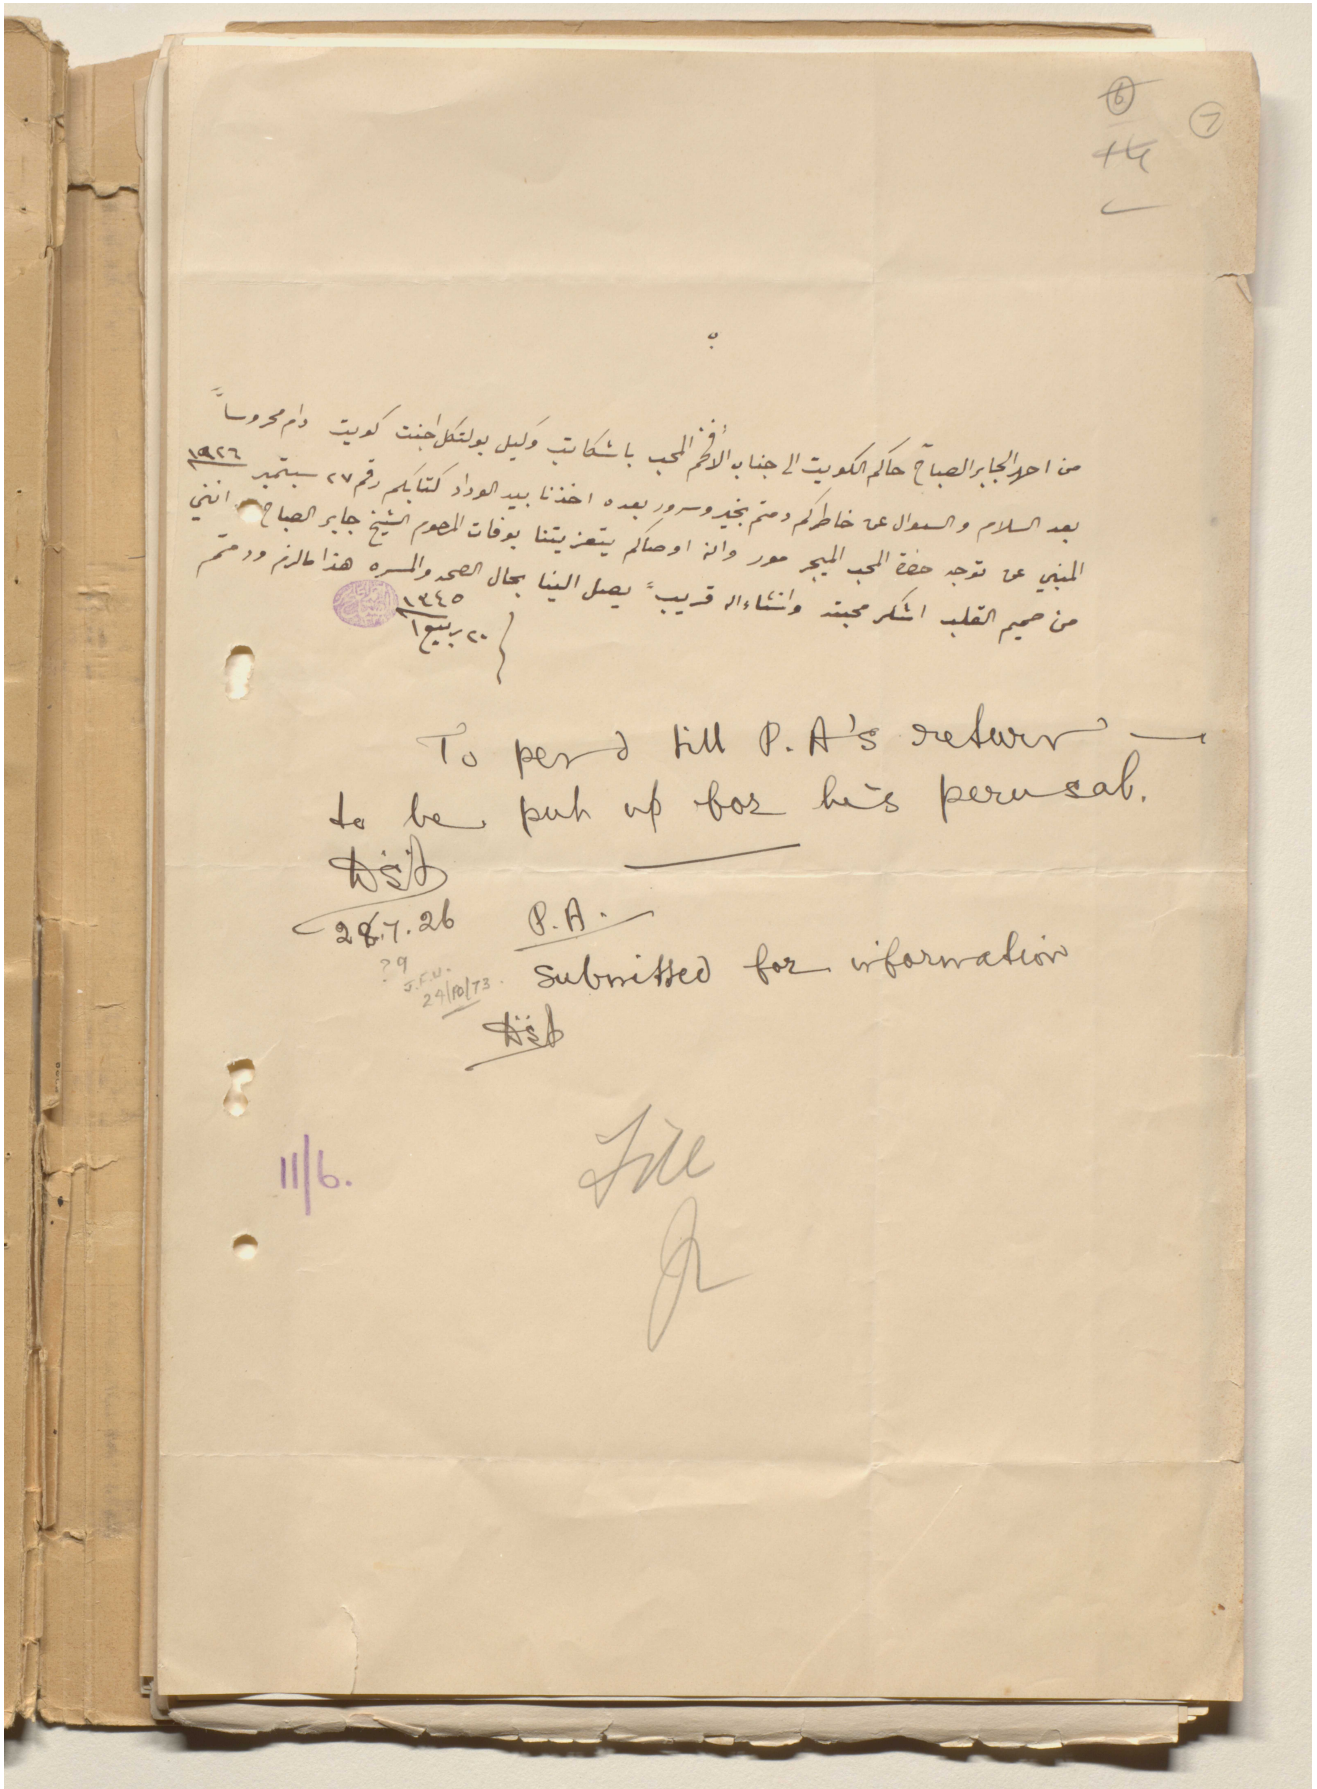 6
7
من احمد الجابر الصباح حاكم الكويت الى جناب الأفخم المحب باشكاتب وكيل بولتكل اجنت كويت دام محروساً
بعد السلام والسوال عن خاطركم دمتم بخير وسرور بعده اخذنا بيد الوداد كتابكم رقم ٢٧ سبتمبر ١٩٢٦
المبني عن توجه حضرة المحب الميجر مور وانه اوصاكم بتعزيتنا بوفات المرحوم الشيخ جابر الصباح انني
من صميم القلب اشكر محبته وانشاءاله قريباً يصل الينا بحال الصحه والمسره هذا مالزم ودمتم
٢٠ ربيع ١ ١٣٤٥
To pend till P.A's return —
to be put up for his perusal.
28.7.26
? 9
24/10/73
P.A.
Submitted for information
11/6.
File